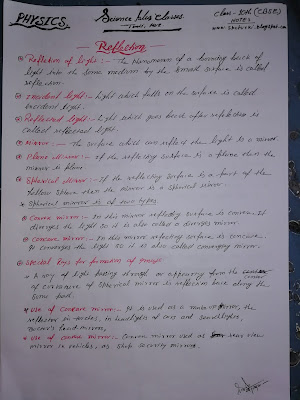 PHYSICS
Science Plus Classes
Class - Xth (CBSE)
NOTES
Reflection
Reflection of light :- The Phenomenon of a bouncing back of
light into the same medium by the smooth surface is called
reflection.
Incident light :- light which falls on the surface is called
incident light.
Reflected light :- light which goes back after reflection is
called reflected light.
Mirror :- The surface which can reflect the light is a mirror.
Plane Mirror :- if the reflecting surface is a plane then the
mirror is plain
Spherical Mirror :- If the reflecting surface is a part of the
hollow sphere then the mirror is a spherical mirror.
Spherical mirror is of two types
Convex mirror :- In this mirror reflecting surface is convex. It
diverges the light so it is also called a diverging mirror.
Concave mirror :- In this mirror reflecting surface is concave.
It converges the light so it is also called converging mirror.
Special Rays for formation of image
A ray of light passing through or appearing from the center
of curvature of spherical mirror is reflection back along the
same path.
Use of Concave mirror :- It is used as a
reflector in torches, in headlights of cars and searchlights,
mirror.
Use of convex mirror :- Convex mirror used as rear view
mirror in vehicles, as shop security mirror.